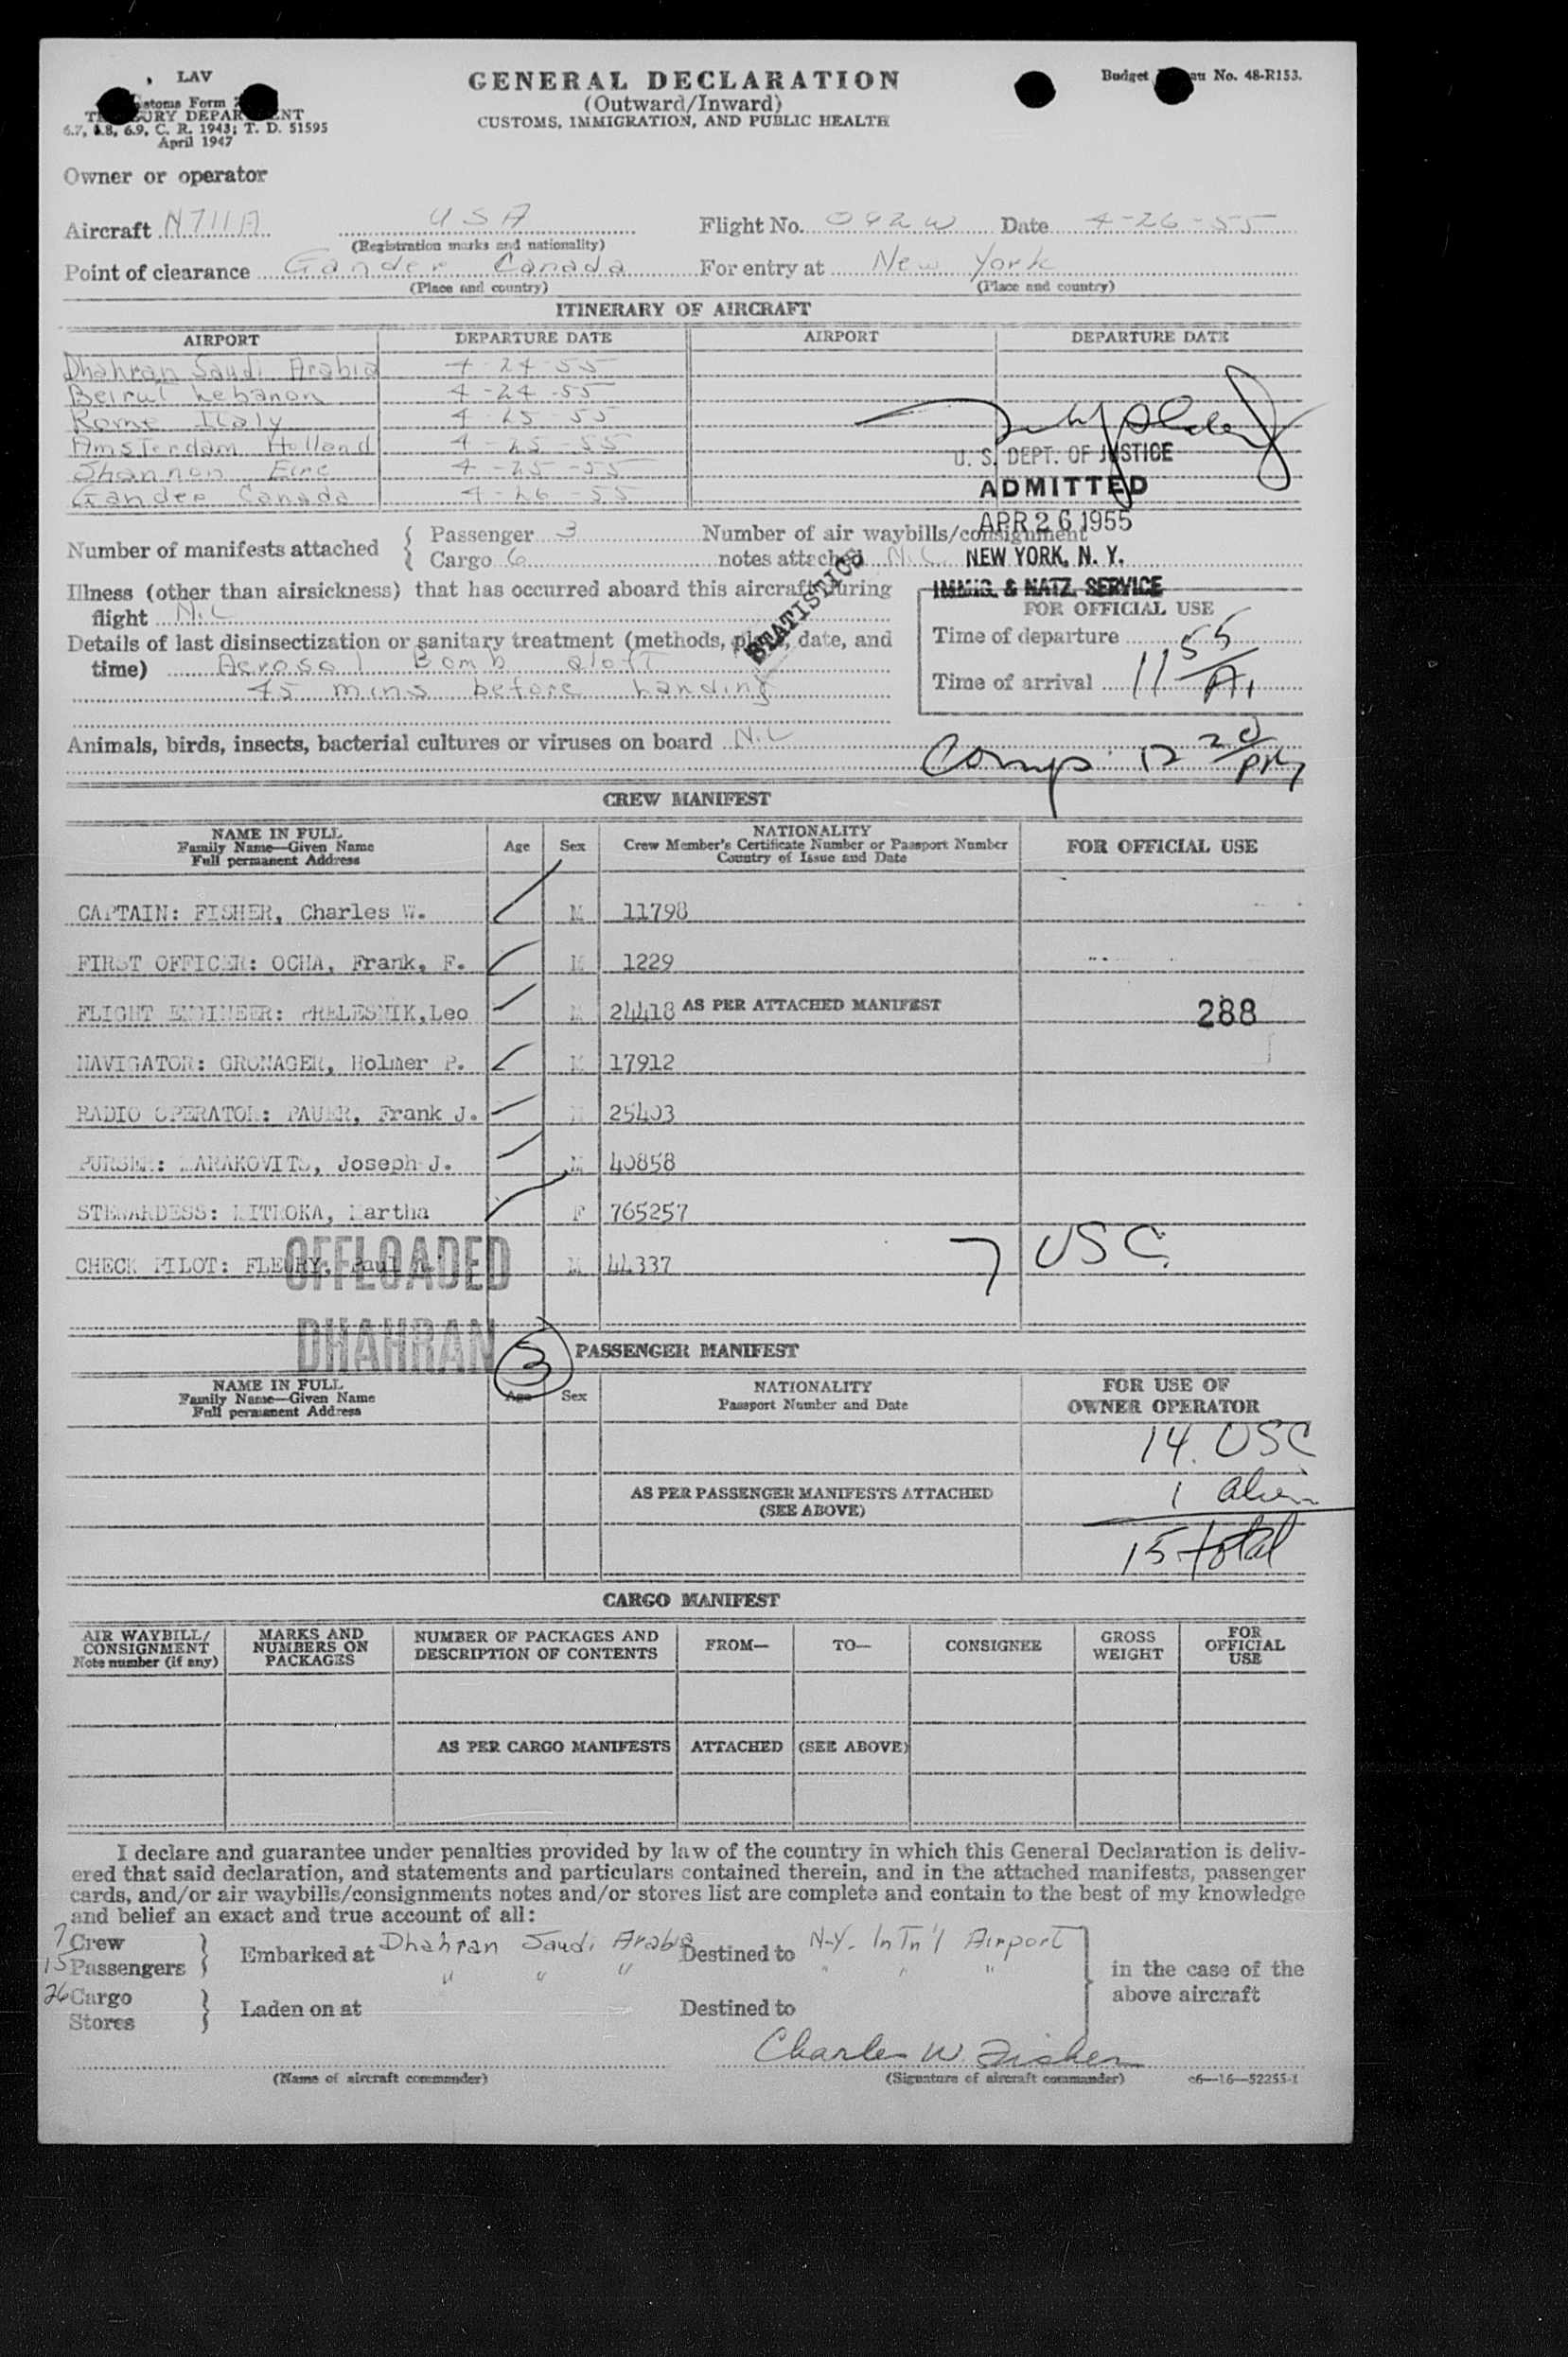 LAV
GENERAL DECLARATION
Budget No. 48-R153.
(Outward/Inward)
Customs Form
CUSTOMS, IMMIGRATION, AND PUBLIC HEALTH
6.7, 6.8, 6.9, C. R. 1943; T. D. 51595
April 1947
Owner or operator
Aircraft N711A USA Flight No. 092W Date 4-26-55
(Registration marks and nationality)
Point of clearance Gander Canada For entry at New York
(Place and country) (Place and country)
ITINERARY OF AIRCRAFT
AIRPORT DEPARTURE DATE AIRPORT DEPARTURE DATE
Dhahran Saudi Arabia 4-24-55
Beirut Lebanon 4-24-55
Rome Italy 4-25-55
Amsterdam Holland 4-25-55
Shannon Eire 4-25-55
Gander Canada 4-26-55
U. S. DEPT. OF JUSTICE
ADMITTED
APR 26 1955
NEW YORK, N. Y.
IMMIG. & NATZ. SERVICE
Number of manifests attached { Passenger 3 Number of air waybills/consignment
Cargo 6 notes attached NiL
STATISTICS
Illness (other than airsickness) that has occurred aboard this aircraft during
flight NiL
Details of last disinsectization or sanitary treatment (methods, place, date, and
time) Aerosol Bomb aloft
45 mins before Landing
FOR OFFICIAL USE
Time of departure
Time of arrival 11 55/A
Animals, birds, insects, bacterial cultures or viruses on board NiL
Comp 12 20/PM
CREW MANIFEST
NAME IN FULL
Family Name—Given Name
Full permanent Address
Age Sex
NATIONALITY
Crew Member's Certificate Number or Passport Number
Country of Issue and Date
FOR OFFICIAL USE
CAPTAIN: FISHER, Charles W. M 11798
FIRST OFFICER: OCHA, Frank, F. M 1229
FLIGHT ENGINEER: PRELESNIK, Leo M 24418 AS PER ATTACHED MANIFEST 288
NAVIGATOR: GRONAGER, Holmer P. M 17912
RADIO OPERATOR: PAUER, Frank J. M 25403
PURSER: MARAKOVITS, Joseph J. M 40858
STEWARDESS: MITROKA, Martha F 765257
CHECK PILOT: FLEURY, Paul M 44337 7 USC
OFFLOADED
DHAHRAN
3
PASSENGER MANIFEST
NAME IN FULL
Family Name—Given Name
Full permanent Address
Age Sex
NATIONALITY
Passport Number and Date
FOR USE OF
OWNER OPERATOR
14 USC
AS PER PASSENGER MANIFESTS ATTACHED
(SEE ABOVE)
1 alien
15 total
CARGO MANIFEST
AIR WAYBILL/
CONSIGNMENT
Note number (if any)
MARKS AND
NUMBERS ON
PACKAGES
NUMBER OF PACKAGES AND
DESCRIPTION OF CONTENTS
FROM—
TO—
CONSIGNEE
GROSS
WEIGHT
FOR
OFFICIAL
USE
AS PER CARGO MANIFESTS ATTACHED (SEE ABOVE)
I declare and guarantee under penalties provided by law of the country in which this General Declaration is deliv-
ered that said declaration, and statements and particulars contained therein, and in the attached manifests, passenger
cards, and/or air waybills/consignments notes and/or stores list are complete and contain to the best of my knowledge
and belief an exact and true account of all:
7 Crew
15 Passengers } Embarked at Dhahran Saudi Arabia Destined to N-Y. InTn'l Airport
" " " " " "
in the case of the
above aircraft
26 Cargo
Stores } Laden on at Destined to
Charles W. Fisher
(Name of aircraft commander) (Signature of aircraft commander) c6—16—52255-1